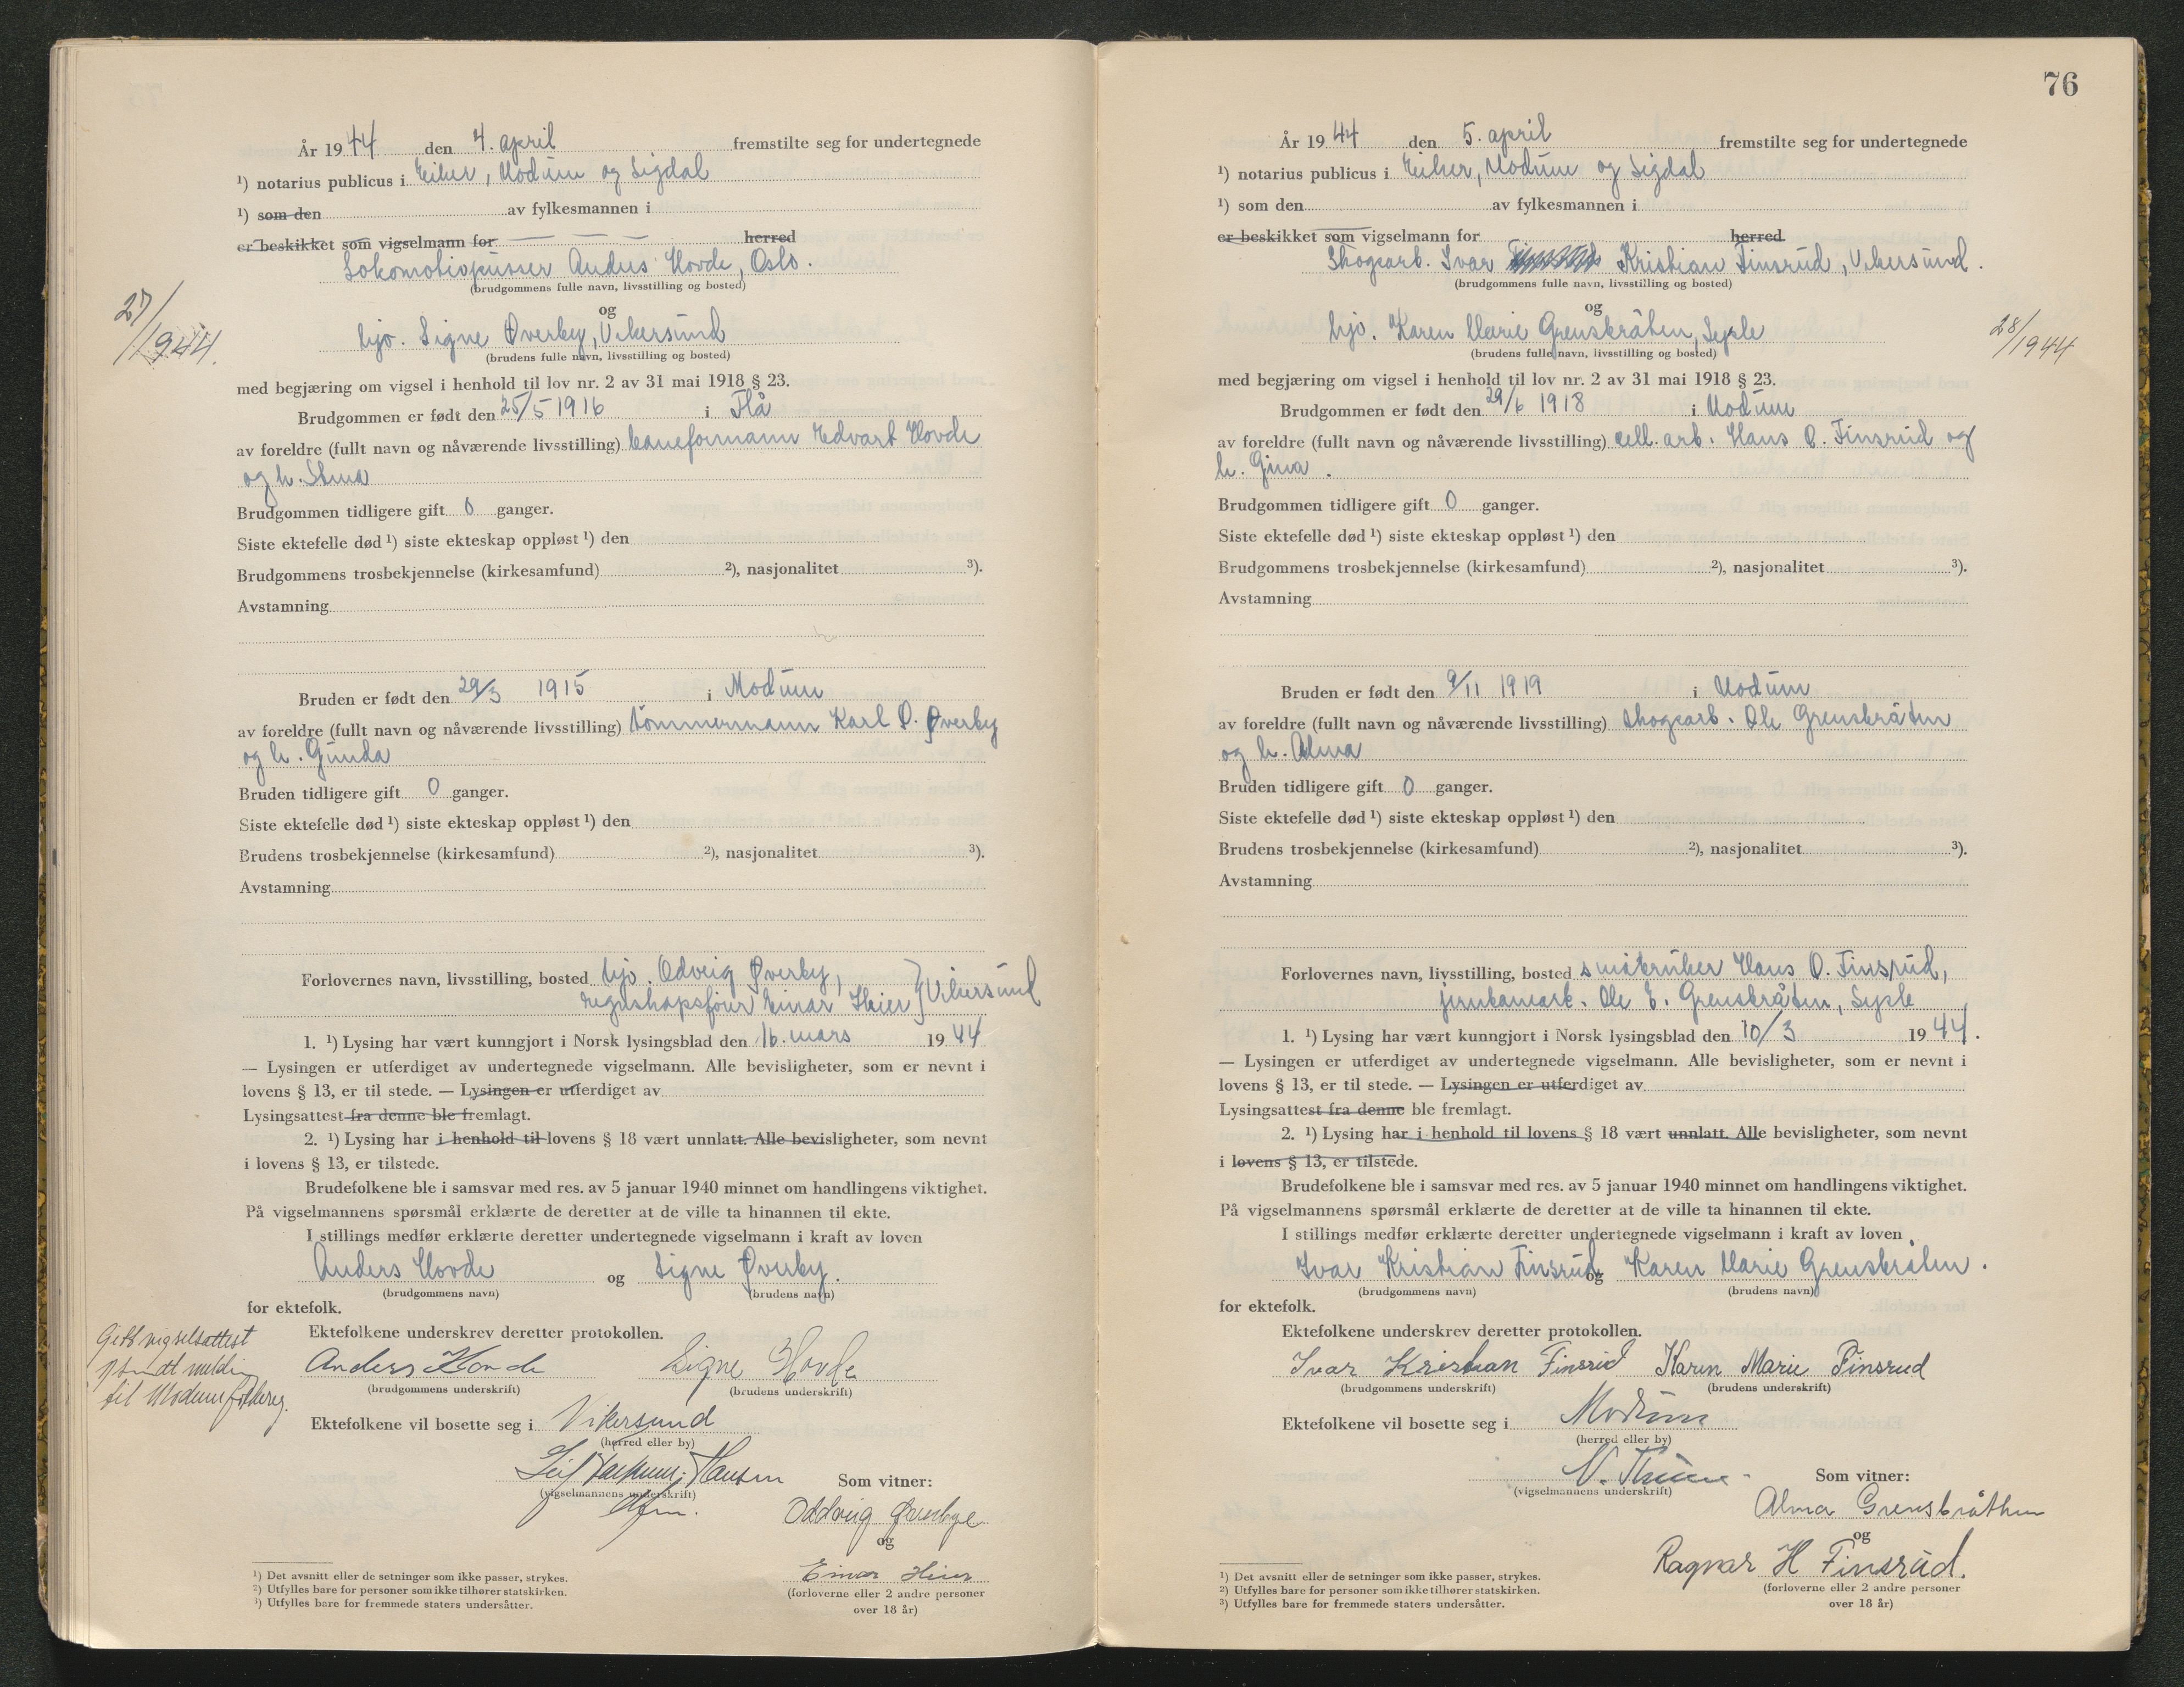 År 1944 den 4. april fremstilte seg for undertegnede
¹) notarius publicus i Eiker, Modum og Sigdal
¹) som den av fylkesmannen i
er beskikket som vigselmann for — — — herred
Lokomotivpusser Anders Hovde, Oslo.
(brudgommens fulle navn, livsstilling og bosted)
og
27/1944.
hjv. Signe Øverby, Vikersund
(brudens fulle navn, livsstilling og bosted)
med begjæring om vigsel i henhold til lov nr. 2 av 31 mai 1918 § 23.
Brudgommen er født den 25/5 1916 i Flå
av foreldre (fullt navn og nåværende livsstilling) baneformann Edvart Hovde
og h.
Brudgommen tidligere gift 0 ganger.
Siste ektefelle død ¹) siste ekteskap oppløst ¹) den
Brudgommens trosbekjennelse (kirkesamfund) ²), nasjonalitet ³).
Avstamning
Bruden er født den 29/3 1915 i Modum
av foreldre (fullt navn og nåværende livsstilling) tömmermann Karl O. Øverby
og h. Gunda
Bruden tidligere gift 0 ganger.
Siste ektefelle død ¹) siste ekteskap oppløst ¹) den
Brudens trosbekjennelse (kirkesamfund) ²), nasjonalitet ³).
Avstamning
Forlovernes navn, livsstilling, bosted hjv. Odveig Øverby,
regnskapsfører Einar Heier } Vikersund
1. ¹) Lysing har vært kunngjort i Norsk lysingsblad den 16. mars 1944
— Lysingen er utferdiget av undertegnede vigselmann. Alle bevisligheter, som er nevnt i
lovens § 13, er til stede. — Lysingen er utferdiget av
Lysingsattest fra denne ble fremlagt.
2. ¹) Lysing har i henhold til lovens § 18 vært unnlatt. Alle bevisligheter, som nevnt
i lovens § 13, er tilstede.
Brudefolkene ble i samsvar med res. av 5 januar 1940 minnet om handlingens viktighet.
På vigselmannens spørsmål erklærte de deretter at de ville ta hinannen til ekte.
I stillings medfør erklærte deretter undertegnede vigselmann i kraft av loven
Anders Hovde og Signe Øverby.
(brudgommens navn) (brudens navn)
for ektefolk.
Ektefolkene underskrev deretter protokollen.
Gitt vigselsattest
samt meldin
til Modum folkereg.
Anders Hovde Signe Hovde
(brudgommens underskrift) (brudens underskrift)
Ektefolkene vil bosette seg i Vikersund
(herred eller by)
Leif Hansen
(vigselmannens underskrift)
Som vitner:
Oddveig Øverbye
og
Einar Heier
(forloverne eller 2 andre personer
over 18 år)
¹) Det avsnitt eller de setninger som ikke passer, strykes.
²) Utfylles bare for personer som ikke tilhører statskirken.
³) Utfylles bare for fremmede staters undersåtter.
76
År 1944 den 5. april fremstilte seg for undertegnede
¹) notarius publicus i Eiker, Modum og Sigdal
¹) som den av fylkesmannen i
er beskikket som vigselmann for herred
Skogsarb. Ivar Kristian Finsrud, Vikersund.
(brudgommens fulle navn, livsstilling og bosted)
og
hjv. Karen Marie Grensbråten, Sysle
(brudens fulle navn, livsstilling og bosted)
28/1944
med begjæring om vigsel i henhold til lov nr. 2 av 31 mai 1918 § 23.
Brudgommen er født den 29/6 1918 i Modum
av foreldre (fullt navn og nåværende livsstilling) cell. arb. Hans O. Finsrud og
h. Gina.
Brudgommen tidligere gift 0 ganger.
Siste ektefelle død ¹) siste ekteskap oppløst ¹) den
Brudgommens trosbekjennelse (kirkesamfund) ²), nasjonalitet ³).
Avstamning
Bruden er født den 9/11 1919 i Modum
av foreldre (fullt navn og nåværende livsstilling) skogsarb. Ole Grensbråten
og h. Alma
Bruden tidligere gift 0 ganger.
Siste ektefelle død ¹) siste ekteskap oppløst ¹) den
Brudens trosbekjennelse (kirkesamfund) ²), nasjonalitet ³).
Avstamning
Forlovernes navn, livsstilling, bosted småbruker Hans O. Finsrud,
jernbanearb. Ole E. Grensbråten, Sysle
1. ¹) Lysing har vært kunngjort i Norsk lysingsblad den 10/3 1944.
— Lysingen er utferdiget av undertegnede vigselmann. Alle bevisligheter, som er nevnt i
lovens § 13, er til stede. — Lysingen er utferdiget av
Lysingsattest fra denne ble fremlagt.
2. ¹) Lysing har i henhold til lovens § 18 vært unnlatt. Alle bevisligheter, som nevnt
i lovens § 13, er tilstede.
Brudefolkene ble i samsvar med res. av 5 januar 1940 minnet om handlingens viktighet.
På vigselmannens spørsmål erklærte de deretter at de ville ta hinannen til ekte.
I stillings medfør erklærte deretter undertegnede vigselmann i kraft av loven
Ivar Kristian Finsrud og Karen Marie Grensbråten.
(brudgommens navn) (brudens navn)
for ektefolk.
Ektefolkene underskrev deretter protokollen.
Ivar Kristian Finsrud Karen Marie Finsrud
(brudgommens underskrift) (brudens underskrift)
Ektefolkene vil bosette seg i Modum
(herred eller by)
(vigselmannens underskrift)
Som vitner:
Alma Grensbråthen
og
Ragnar H Finsrud.
(forloverne eller 2 andre personer
over 18 år)
¹) Det avsnitt eller de setninger som ikke passer, strykes.
²) Utfylles bare for personer som ikke tilhører statskirken.
³) Utfylles bare for fremmede staters undersåtter.